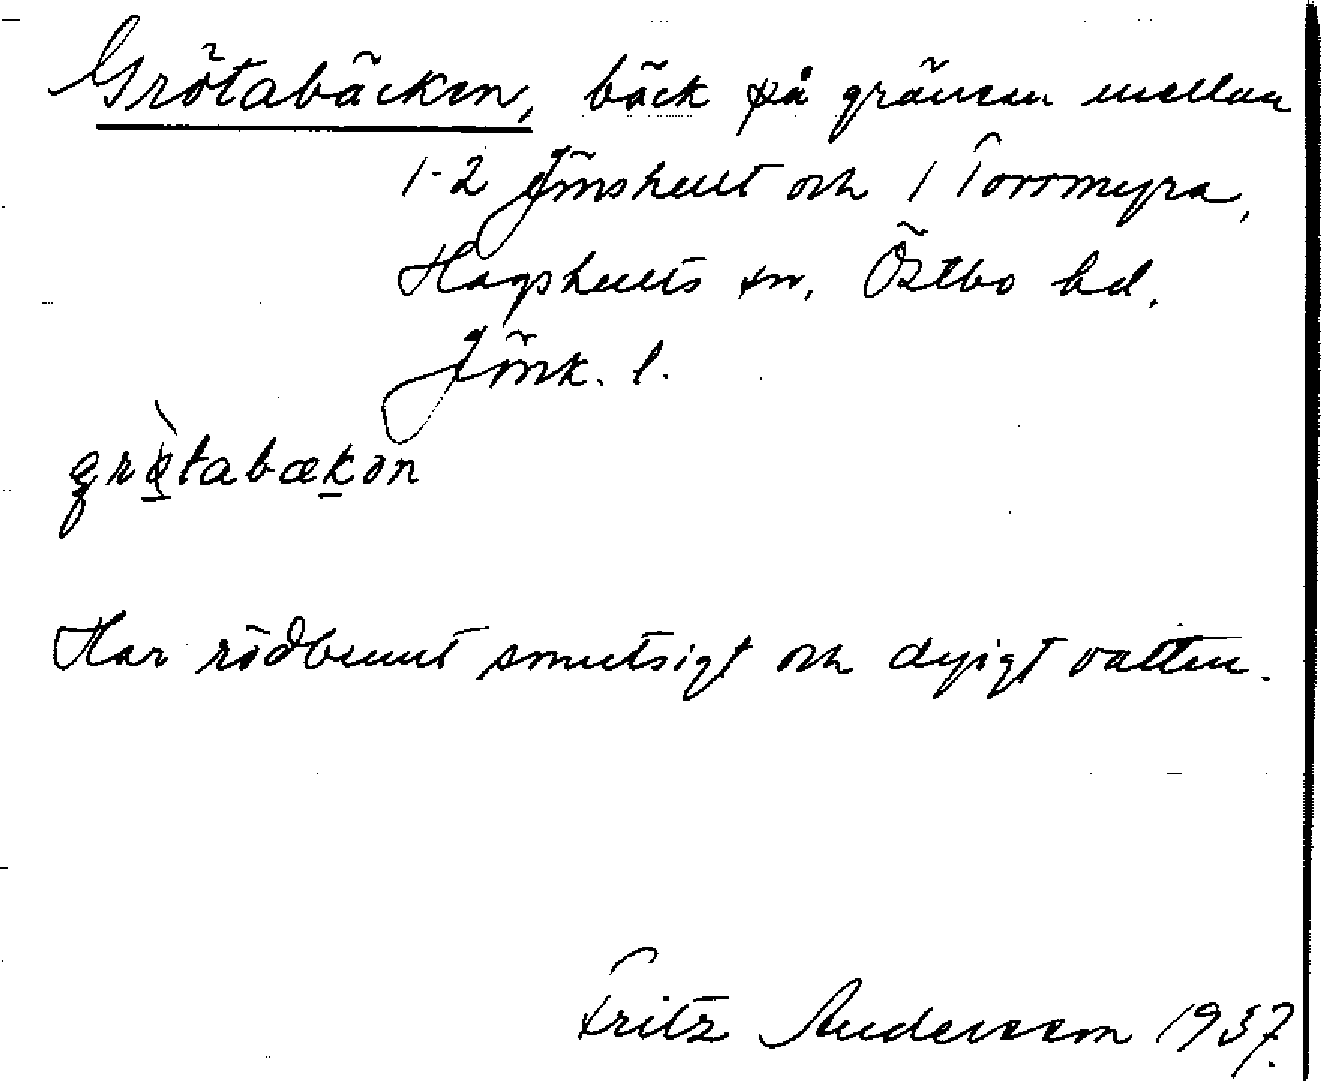 Grötabäcken, bäck på gränsen mellan
1-2 Jönshult och 1 Torrmyra,
Hagshults sn, Östbo hd.
Jönk. l.
grø̀tabækən
Har rödbrunt smutsigt och dyigt vatten.
Fritz Andersson 1937.